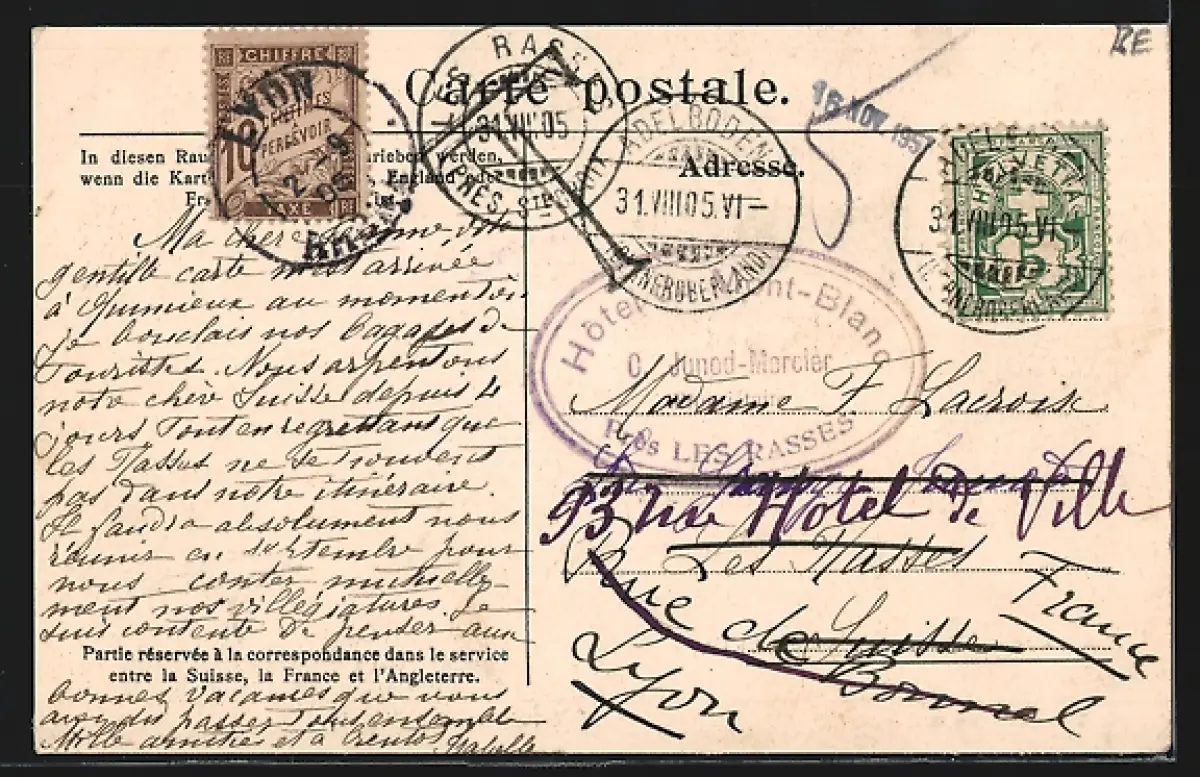 RE
CHIFFRE
CENTIMES
À
PERCEVOIR
10
TAXE
LYON
RHONE
LES RASSES
31.VIII.05
T
Carte postale.
16 NOV. 1957
ADELBODEN
31.VIII.05.VI–
(BERNEROBERLAND)
HELVETIA
5
ADELBODEN
31.VIII.05.VI
Adresse.
In diesen
werden,
wenn die
England
Ma chère
gentille carte m'est arrivée
à Quinnieux au moment où
je bouclais nos bagages de
touristes. Nous arpentons
notre chère Suisse depuis 4
jours tout en regrettant que
les Rasses ne se trouvent
pas dans notre itinéraire.
Il faudra absolument nous
réunir en septembre pour
nous conter mutuelle-
ment nos villégiatures. Je
suis contente de penser aux
Partie réservée à la correspondance dans le service
entre la Suisse, la France et l'Angleterre.
bonnes vacances que vous
avez dû passer tout ensemble
Mille amitiés et à
Hôtel Mont-Blanc
C. Junod-Mercier
Près LES RASSES
Madame F. Lacroix
93 rue Hôtel de Ville
Les Rasses
Rue de Suisse
Bonnel
Lyon
France